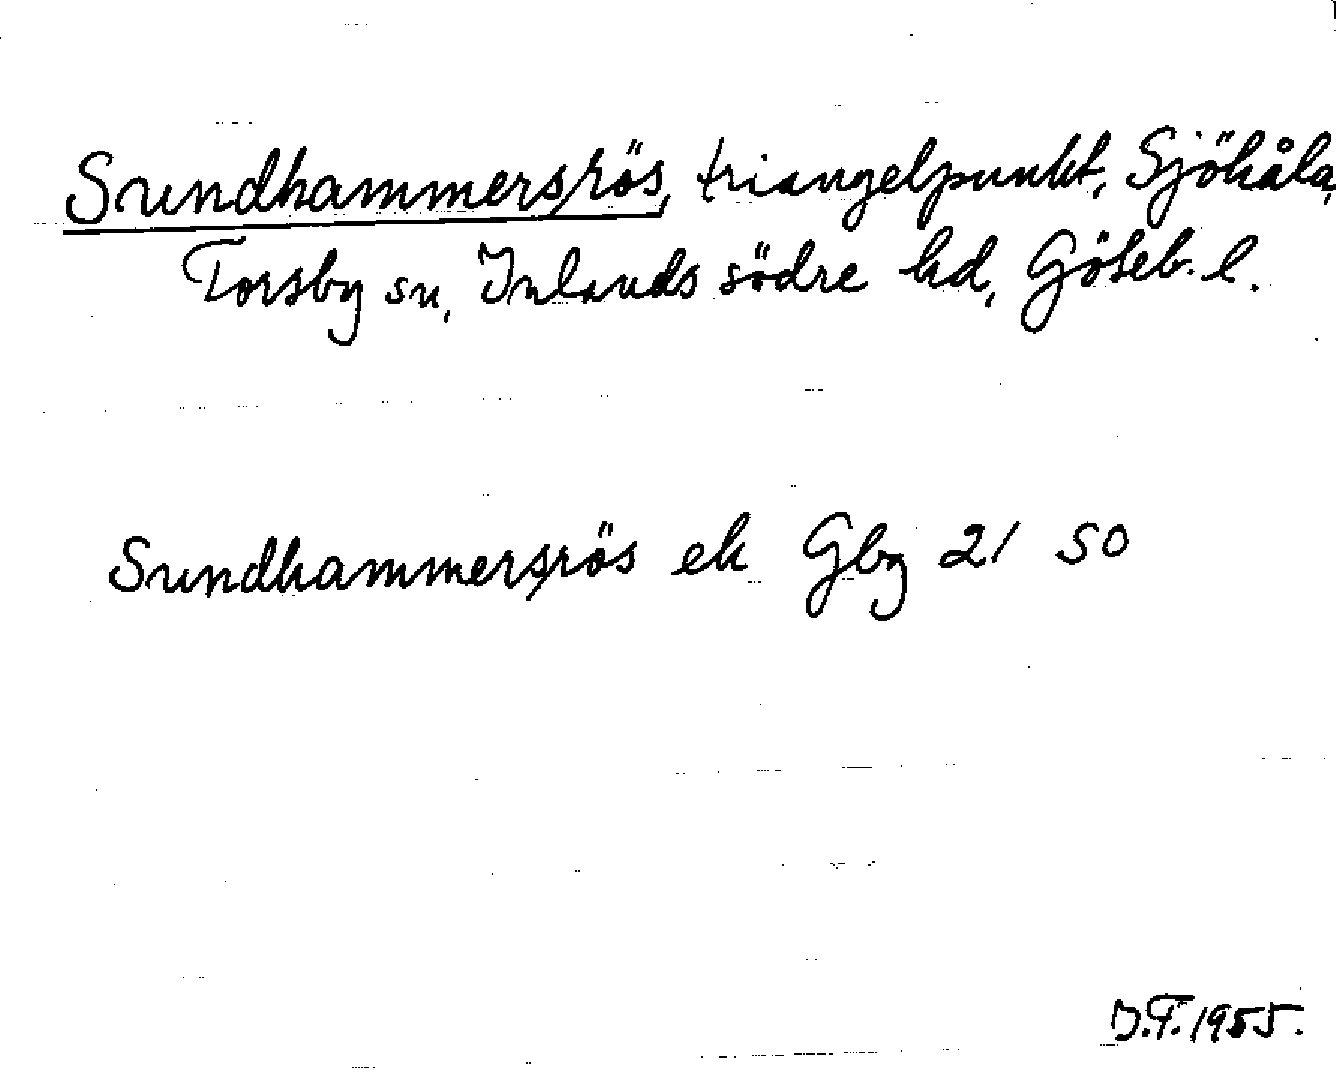 Sundhammersrös, triangelpunkt, Sjöhåla,
Torsby sn, Inlands södre hd, Göteb. l.
Sundhammersrös ek Gbg 21 SO
J.F. 1955.